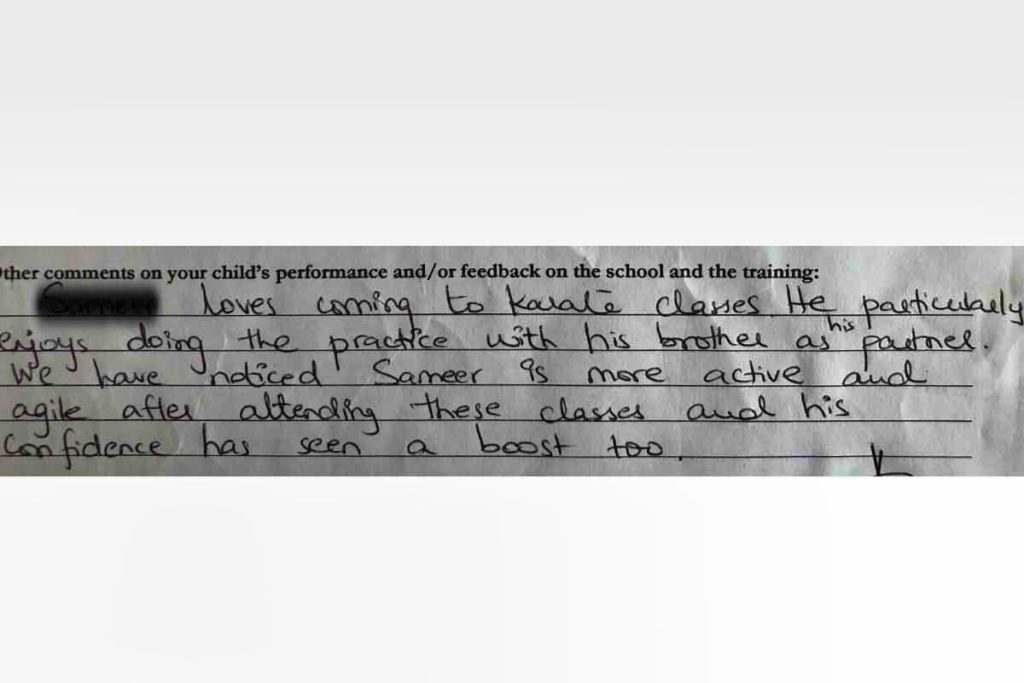 ther comments on your child's performance and/or feedback on the school and the training:
loves coming to karate classes. He particularly
enjoys doing the practice with his brother as his partner.
We have noticed Sameer is more active and
agile after attending these classes and his
confidence has seen a boost too.